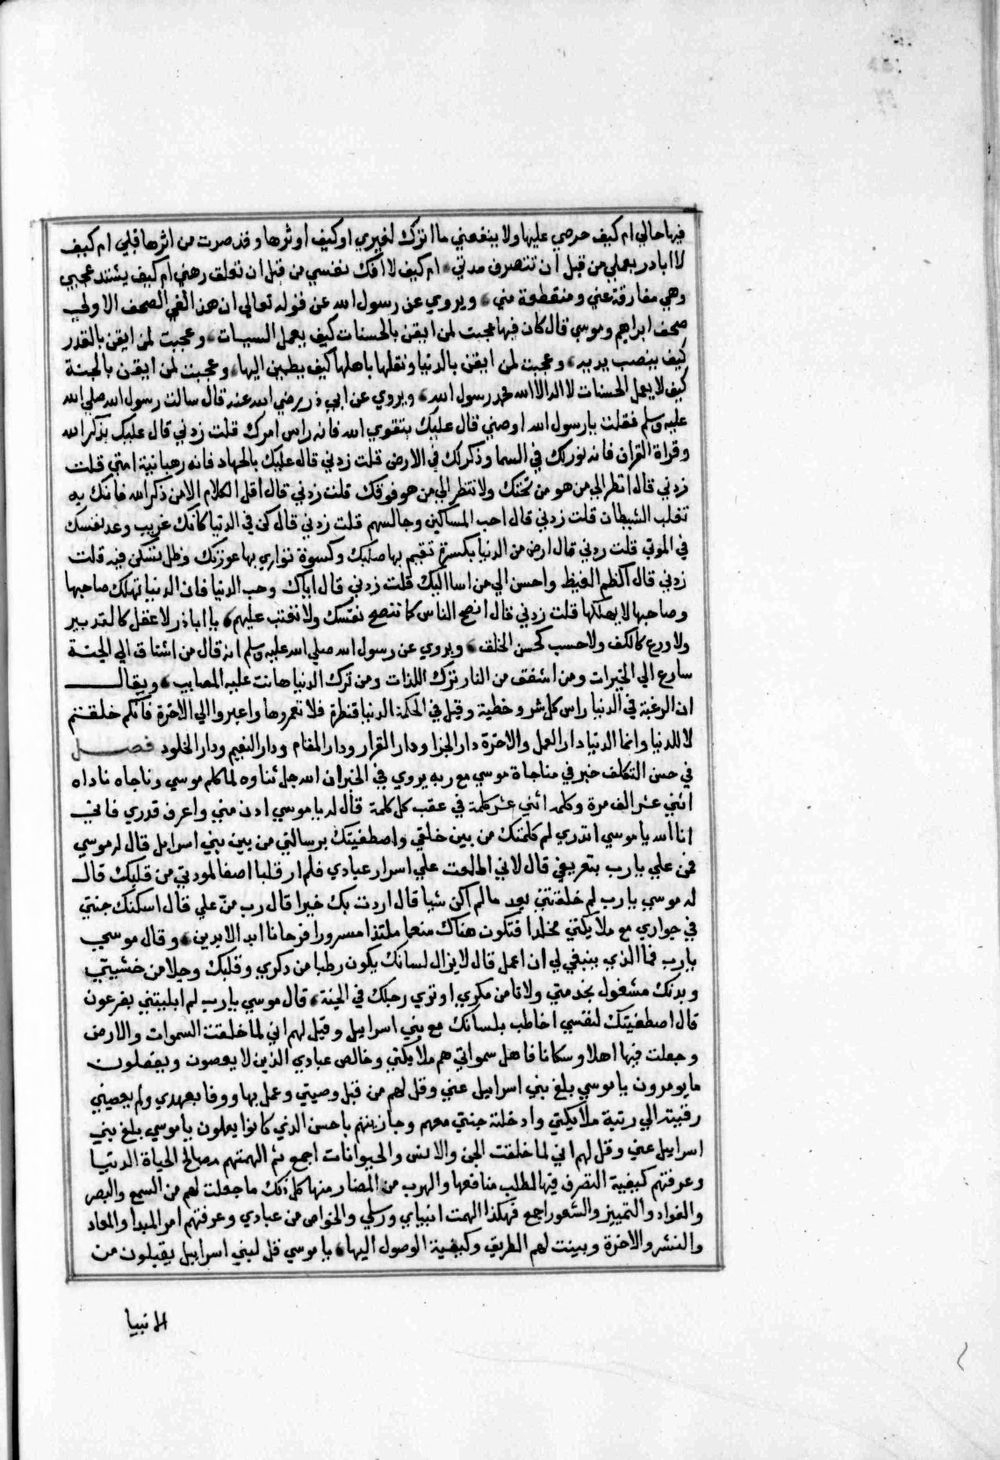 فيها حالي ام كيف حرصي عليها ولا ينفعني ما اترك لغيري او كيف اوثرها وقد صرت من اثرها قبلي ام كيف
لا ابادر بعملي من قبل ان تتصرف مدتي ام كيف لا افك نفسي من قبل ان تغلق رهني ام كيف يشتد عجبي
وهي مفارقة عني ومنقطعة مني ويروي عن رسول الله عن قوله تعالى ان هذا لفي الصحف الاولى
صحف ابراهيم وموسى قال كان فيها عجبت لمن ايقن بالحسنات كيف يعمل السيات وعجبت لمن ايقن بالقدر
كيف ينصب يديه وعجبت لمن ايقن بالدنيا وتقلبها باهلها كيف يطمين اليها وعجبت لمن ايقن بالجنة
كيف لا يعمل الحسنات لا اله الا الله محمد رسول الله ويروي عن ابي ذر رضي الله عنه قال سالت رسول الله صلى الله
عليه وسلم فقلت يا رسول الله اوصني قال عليك بتقوي الله فانه راس امرك قلت زدني قال عليك بذكر الله
وقراة القران فانه نور لك في السما وذكر لك في الارض قلت زدني قال عليك بالجهاد فانه رهبانية امتي قلت
زدني قال انظر الي من هو من تحتك ولا تنظر الي من هو فوقك قلت زدني قال اقل الكلام الا من ذكر الله فانك به
تغلب الشيطان قلت زدني قال احب المساكين وجالسهم قلت زدني قال كن في الدنيا كانك غريب وعد نفسك
في الموتي قلت زدني قال ارض من الدنيا بكسرة تقيم بها صلبك وكسوة تواري بها عورتك وظل تسكن فيه قلت
زدني قال اكظم الغيظ واحسن الي من اسا اليك قلت زدني قال اياك وحب الدنيا فان الدنيا تهلك صاحبها
وصاحبها لا يهلكها قلت زدني قال انصح الناس كما تنصح نفسك ولا تعتب عليهم يا اباذر لا عقل كالتدبير
ولا ورع كالكف ولا حسب كحسن الخلق ويروي عن رسول الله صلي الله عليه وسلم انه قال من اشتاق الي الجنة
سارع الي الخيرات ومن اشفق من النار ترك اللذات ومن ترك الدنيا هانت عليه المصايب ويقال
ان الرغبة في الدنيا راس كل شر وخطية وقيل في الحكمة الدنيا قنطرة فلا تعمروها واعبروا الي الاخرة فانكم خلقتم
لا للدنيا وانما الدنيا دار العمل والاخرة دار الجزا ودار القرار ودار المقام ودار النعيم ودار الخلود فصل
في حسن التكلف خبر في مناجاة موسي مع ربه يروي في الخبر ان الله جل ثناوه لما كلم موسي وناجاه ناداه
اثني عشر الف مرة وكلمه اثني عشر كلمة في عقب كل كلمة قال له يا موسي ادن مني واعرف قدري فاني
انا الله يا موسي اتدري لم كلمتك من بين خلقي واصطفيتك برسالتي من بين بني اسرايل قال له موسي
فمن علي يا رب بتعريفي قال لاني اطلعت علي اسرار عبادي فلم ار قلبا اصفا لمودتي من قلبك قال
له موسي يا رب لم خلقتني بعد ما لم اكن شيا قال اردت بك خيرا قال رب من علي قال اسكنك جنتي
في جواري مع ملايكتي مخلدا فتكون هناك منعما ملتذا مسرورا فرحانا ابد الابدين وقال موسي
يا رب فما الذي ينبغي لي ان اعمل قال لا يزال لسانك يكون رطبا من ذكري وقلبك وجلا من خشيتي
وبدنك مشغول بخدمتي ولا تامن مكري او تري رجلك في الجنة قال موسي يا رب لم ابليتني بفرعون
قال اصطفيتك لنفسي اخاطب بلسانك مع بني اسرايل وقيل لهم اني لما خلقت السموات والارض
وجعلت فيها اهلا وسكانا فاهل سمواتي هم ملايكتي وخالص عبادي الذين لا يعصون ويفعلون
ما يومرون يا موسي بلغ بني اسرايل عني وقل لهم من قبل وصيتي وعمل بها ووفا بعهدي ولم يعصيني
رقيته الي رتبة ملايكتي وادخلته جنتي معهم وجازيتهم باحسن الذي كانوا يعلون يا موسي بلغ بني
اسرايل عني وقل لهم اني لما خلقت الجن والانس والحيوانات اجمع ثم الهمتهم مصالح الحياة الدنيا
وعرفتهم كيفية التصرف فيها لطلب منافعها والهرب من المضار منها كل ذلك ما جعلت لهم من السمع والبصر
والفواد والتمييز والشعور اجمع فهكذا الهمت انبياي ورسلي والخواص من عبادي وعرفتهم امر المبدا والمعاد
والنشر والاخرة وبينت لهم الطريق وكيفية الوصول اليها يا موسي قل لبني اسرايل يقبلون من
الانبيا